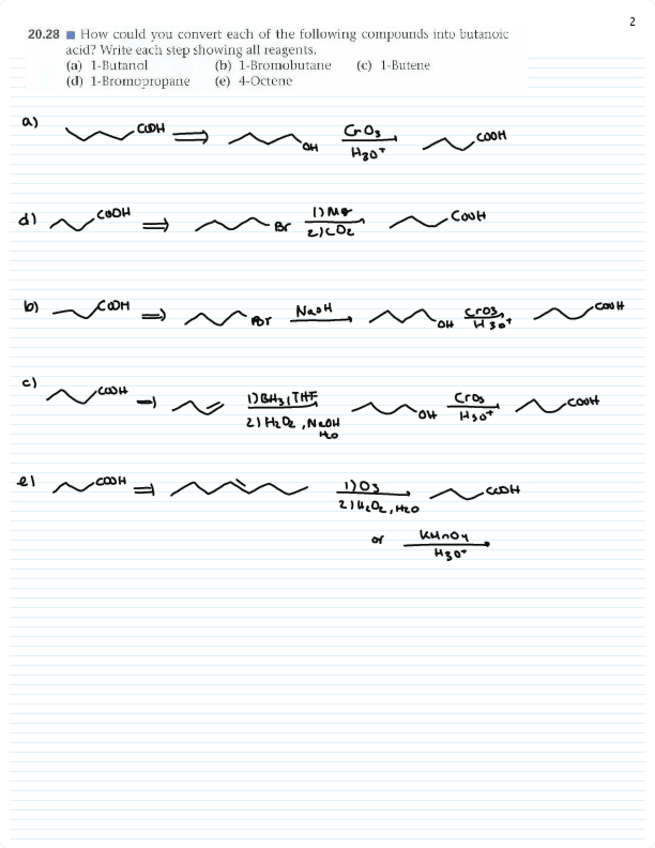 2
20.28 ■ How could you convert each of the following compounds into butanoic
acid? Write each step showing all reagents.
(a) 1-Butanol (b) 1-Bromobutane (c) 1-Butene
(d) 1-Bromopropane (e) 4-Octene
a) COOH ⟹ OH CrO3 H3O+ COOH
d) COOH ⟹ Br 1) Mg 2) CO2 COOH
b) COOH ⟹ Br NaOH OH CrO3 H3O+ COOH
c) COOH ⟹ 1) BH3, THF 2) H2O2, NaOH H2O OH CrO3 H3O+ COOH
e) COOH ⟹ 1) O3 2) H2O2, H2O COOH
or KMnO4 H3O+